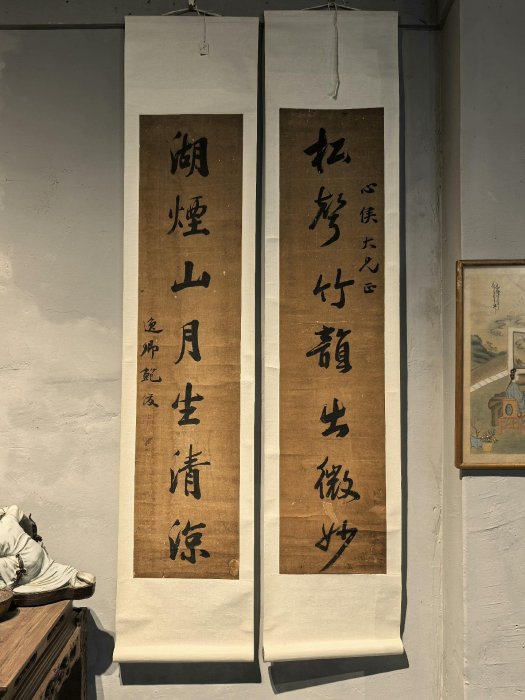 松聲竹韻出微妙
心侯大兄正
湖煙山月生清涼
逸卿鮑俊